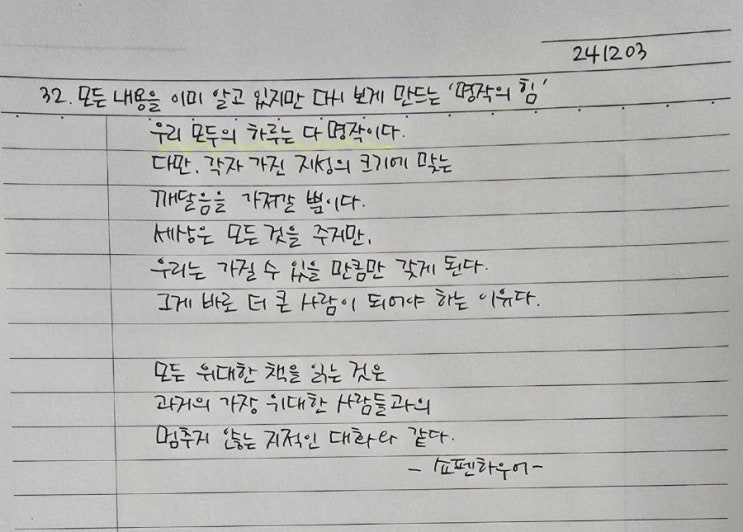 241203
32. 모든 내용을 이미 알고 있지만 다시 보게 만드는 '명작의 힘'
우리 모두의 하루는 다 명작이다.
다만, 각자 가진 지성의 크기에 맞는
깨달음을 가져갈 뿐이다.
세상은 모든 것을 주지만,
우리는 가질 수 있을 만큼만 갖게 된다.
그게 바로 더 큰 사람이 되어야 하는 이유다.
모든 위대한 책을 읽는 것은
과거의 가장 위대한 사람들과의
멈추지 않는 지적인 대화와 같다.
- 쇼펜하우어 -